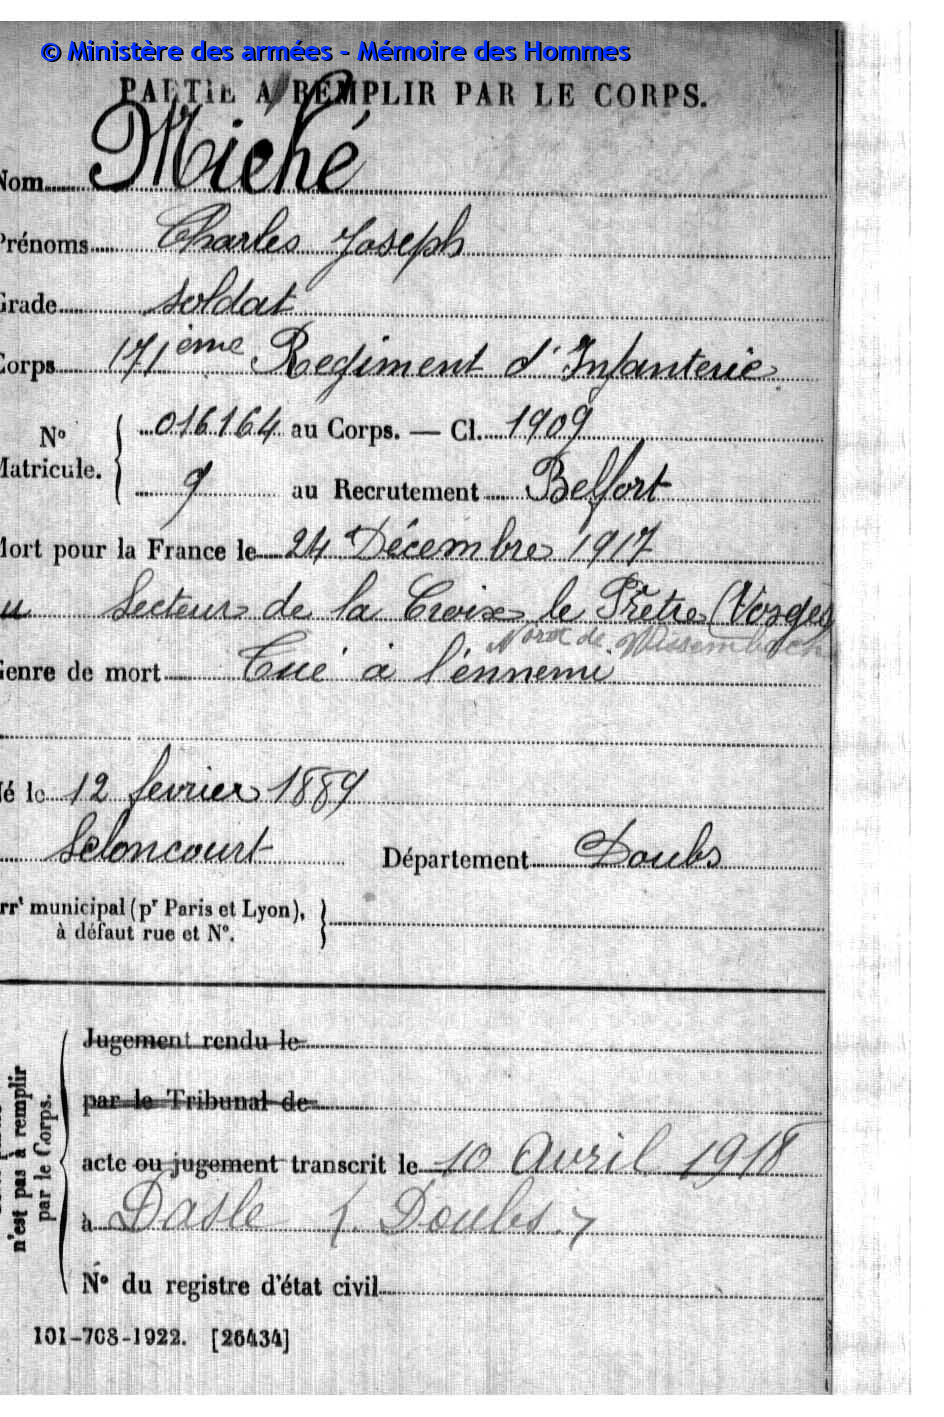 © Ministère des armées - Mémoire des Hommes
PARTIE A REMPLIR PAR LE CORPS.
Nom Miché
Prénoms Charles Joseph
Grade soldat
Corps 171ème Regiment d'Infanterie
No Matricule. 016164 au Corps. — Cl. 1909
9 au Recrutement Belfort
Mort pour la France le 24 Décembre 1917
au Secteur de la Croix le Prêtre (Vosges
Nord de Wissembach
Genre de mort Tué à l'ennemi
Né le 12 fevrier 1889
Seloncourt Département Doubs
arrt municipal (pr Paris et Lyon),
à défaut rue et N°.
Jugement rendu le
par le Tribunal de
acte ou jugement transcrit le 10 Avril 1918
à Dasle (Doubs.)
n'est pas à remplir
par le Corps.
N° du registre d'état civil
101-708-1922. [26434]